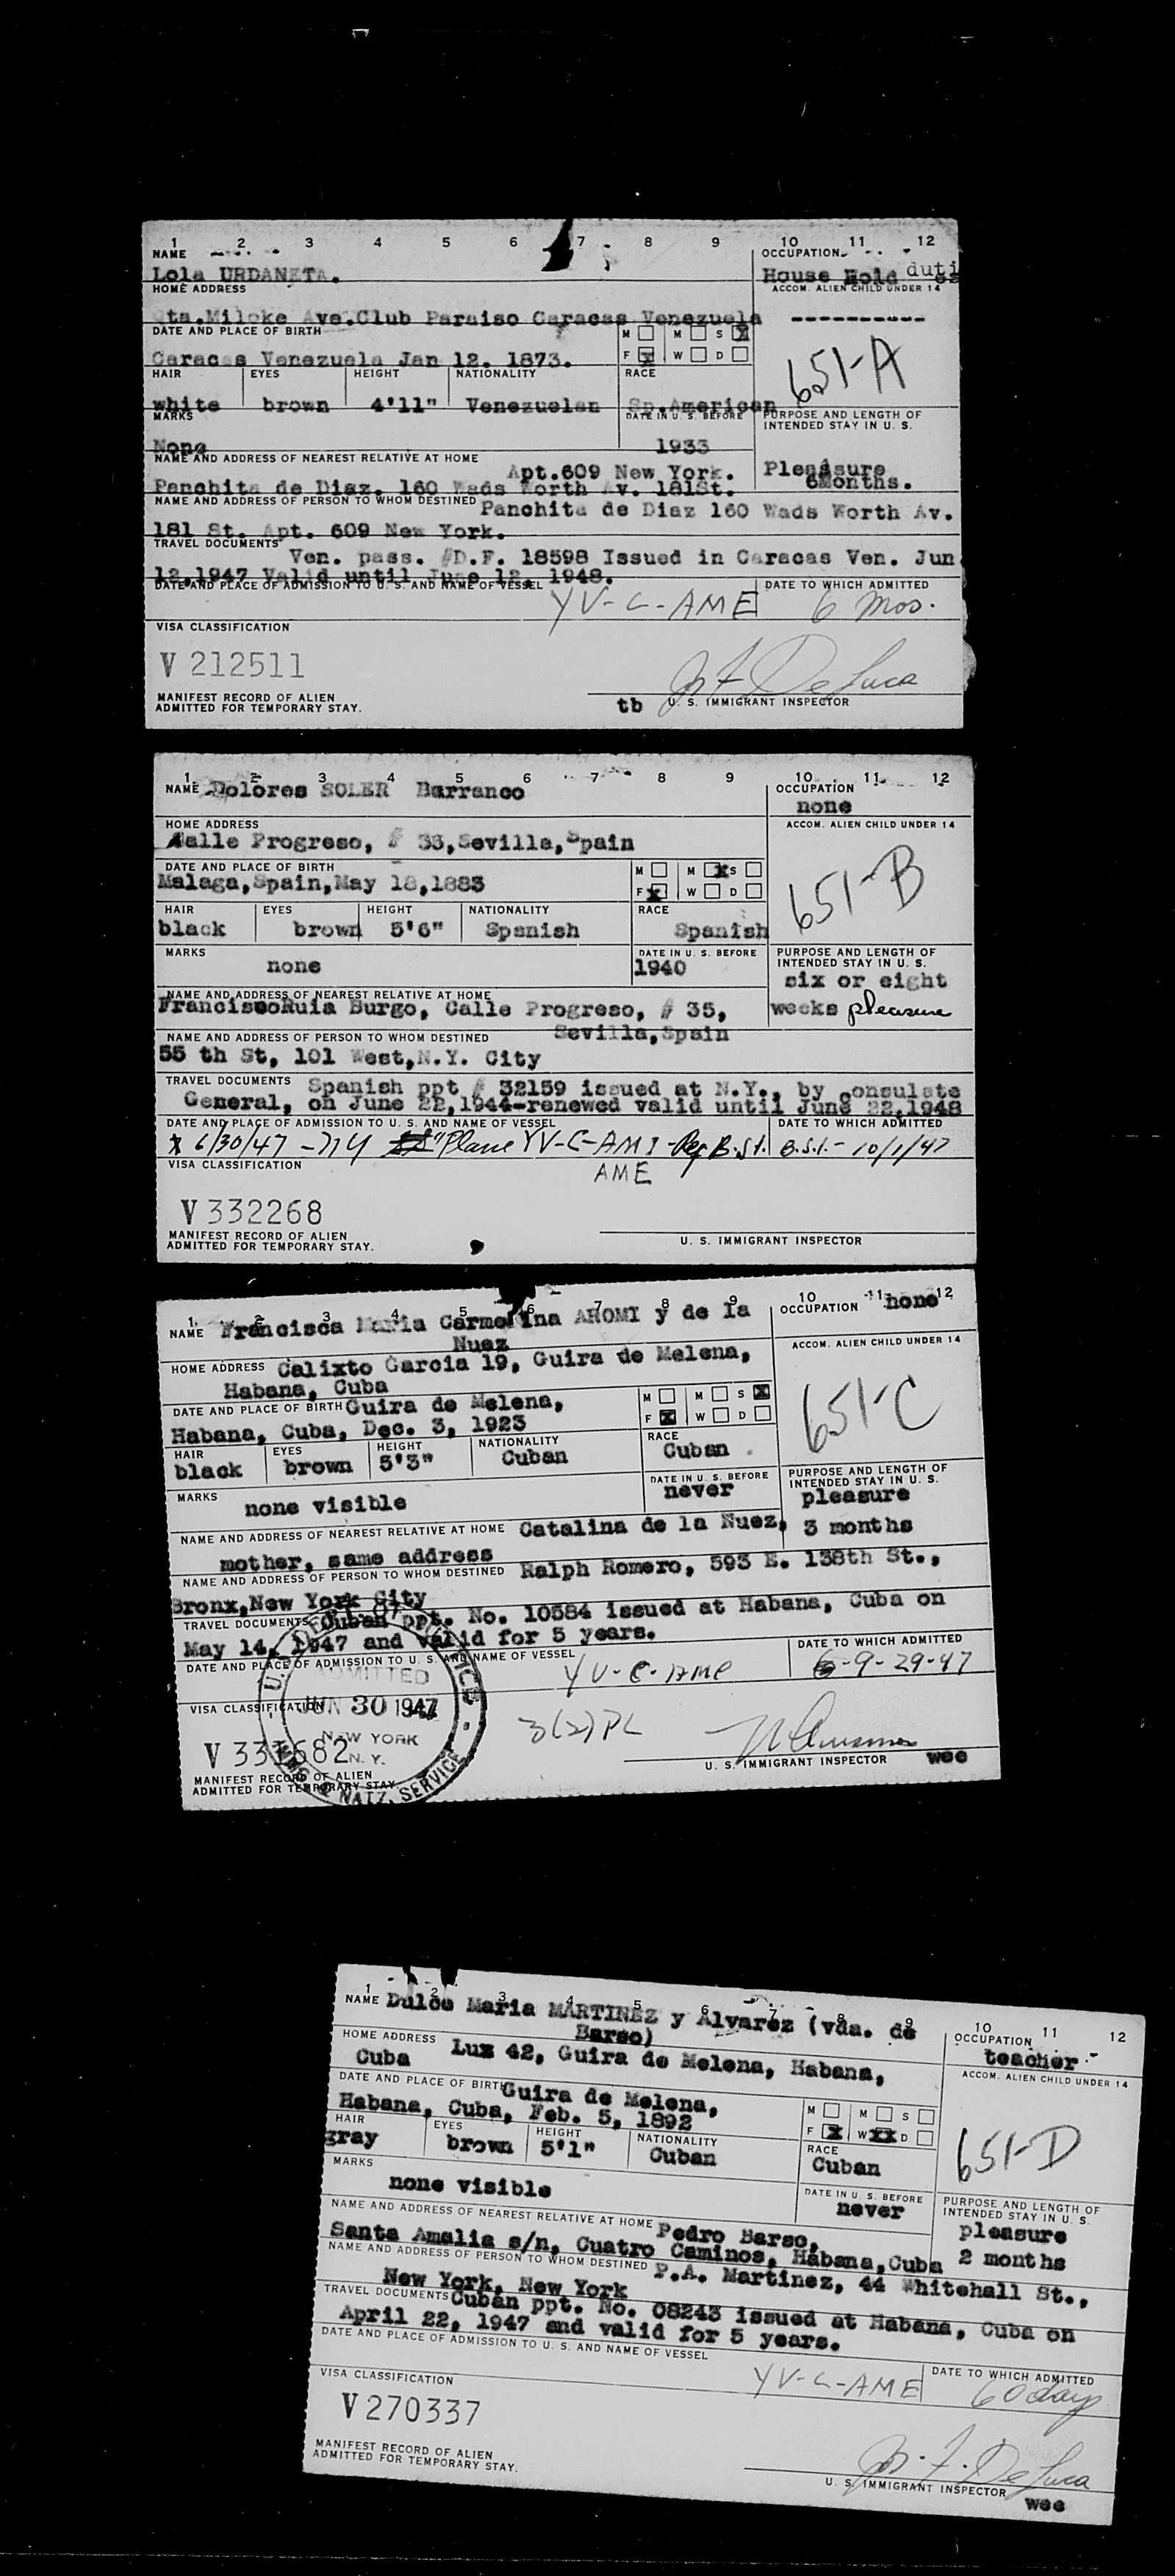 1 2 3 4 5 6 7 8 9 10 11 12
NAME OCCUPATION
Lola URDANETA. House Hold duties
HOME ADDRESS ACCOM. ALIEN CHILD UNDER 14
Qta.Miloke Ave.Club Paraiso Caracas Venezuela ----------
DATE AND PLACE OF BIRTH M M S X
Caracas Venezuela Jan 12. 1873. F X W D
651-A
HAIR EYES HEIGHT NATIONALITY RACE
white brown 4'11" Venezuelan Sp.American
MARKS DATE IN U. S. BEFORE PURPOSE AND LENGTH OF
INTENDED STAY IN U. S.
None 1933
NAME AND ADDRESS OF NEAREST RELATIVE AT HOME
Apt.609 New York. Pleasure
Panchita de Diaz. 160 Wads Worth Av. 181St. 6Months.
NAME AND ADDRESS OF PERSON TO WHOM DESTINED Panchita de Diaz 160 Wads Worth Av.
181 St. Apt. 609 New York.
TRAVEL DOCUMENTS Ven. pass. #D.F. 18598 Issued in Caracas Ven. Jun
12,1947 Valid until June 12, 1948.
DATE AND PLACE OF ADMISSION TO U. S. AND NAME OF VESSEL DATE TO WHICH ADMITTED
YV-C-AME 6 mos.
VISA CLASSIFICATION
V 212511
Jos F De Luca
MANIFEST RECORD OF ALIEN
ADMITTED FOR TEMPORARY STAY. tb U. S. IMMIGRANT INSPECTOR
1 2 3 4 5 6 7 8 9 10 11 12
NAME Dolores SOLER Barranco OCCUPATION
none
HOME ADDRESS ACCOM. ALIEN CHILD UNDER 14
Calle Progreso, # 33,Sevilla,Spain
DATE AND PLACE OF BIRTH M M X S
Malaga,Spain,May 18,1883 F X W D
651-B
HAIR EYES HEIGHT NATIONALITY RACE
black brown 5'6" Spanish Spanish
MARKS DATE IN U. S. BEFORE PURPOSE AND LENGTH OF
INTENDED STAY IN U. S.
none 1940 six or eight
NAME AND ADDRESS OF NEAREST RELATIVE AT HOME
FranciscoRuia Burgo, Calle Progreso, # 35, weeks pleasure
Sevilla,Spain
NAME AND ADDRESS OF PERSON TO WHOM DESTINED
55 th St, 101 West,N.Y. City
TRAVEL DOCUMENTS Spanish ppt # 32159 issued at N.Y., by consulate
General, on June 22,1944-renewed valid until June 22,1948
DATE AND PLACE OF ADMISSION TO U. S. AND NAME OF VESSEL DATE TO WHICH ADMITTED
6/30/47 - NY Plane YV-C-AMI B.S.I. B.S.I.- 10/1/47
VISA CLASSIFICATION AME
V 332268
MANIFEST RECORD OF ALIEN
ADMITTED FOR TEMPORARY STAY. U. S. IMMIGRANT INSPECTOR
1 2 3 4 5 6 7 8 9 10 11 12
NAME Francisca Maria Carmelina AHOMI y de la OCCUPATION none
Nuez
HOME ADDRESS Calixto Garcia 19, Guira de Melena, ACCOM. ALIEN CHILD UNDER 14
Habana, Cuba
DATE AND PLACE OF BIRTH Guira de Melena, M M S X
Habana, Cuba, Dec. 3, 1923 F X W D
651-C
HAIR EYES HEIGHT NATIONALITY RACE
black brown 5'3" Cuban Cuban
MARKS DATE IN U. S. BEFORE PURPOSE AND LENGTH OF
INTENDED STAY IN U. S.
none visible never pleasure
NAME AND ADDRESS OF NEAREST RELATIVE AT HOME Catalina de la Nuez, 3 months
mother, same address
NAME AND ADDRESS OF PERSON TO WHOM DESTINED Ralph Romero, 593 E. 138th St.,
Bronx,New York City
TRAVEL DOCUMENTS Cuban ppt. No. 10584 issued at Habana, Cuba on
May 14, 1947 and valid for 5 years.
DATE AND PLACE OF ADMISSION TO U. S. AND NAME OF VESSEL DATE TO WHICH ADMITTED
YV-C-AME 9-29-47
ADMITTED
VISA CLASSIFICATION JUN 30 1947
3(2)PL
NEW YORK
N. Y.
MANIFEST RECORD OF ALIEN U. S. IMMIGRANT INSPECTOR wee
ADMITTED FOR TEMPORARY STAY
NATZ. SERVICE
1 2 3 4 5 6 7 8 9 10 11 12
NAME Dulce Maria MARTINEZ y Alvarez (vda. de OCCUPATION
Barso) teacher
HOME ADDRESS Luz 42, Guira de Melena, Habana, ACCOM. ALIEN CHILD UNDER 14
Cuba
DATE AND PLACE OF BIRTH Guira de Melena, M M S
Habana, Cuba, Feb. 5, 1892 F X W XX D
651-D
HAIR EYES HEIGHT NATIONALITY RACE
gray brown 5'1" Cuban Cuban
MARKS DATE IN U. S. BEFORE PURPOSE AND LENGTH OF
INTENDED STAY IN U. S.
none visible never pleasure
NAME AND ADDRESS OF NEAREST RELATIVE AT HOME Pedro Barso,
Santa Amalia s/n, Cuatro Caminos, Habana,Cuba 2 months
NAME AND ADDRESS OF PERSON TO WHOM DESTINED P.A. Martinez, 44 Whitehall St.,
New York, New York
TRAVEL DOCUMENTS Cuban ppt. No. 08243 issued at Habana, Cuba on
April 22, 1947 and valid for 5 years.
DATE AND PLACE OF ADMISSION TO U. S. AND NAME OF VESSEL DATE TO WHICH ADMITTED
YV-C-AME 60 days
VISA CLASSIFICATION
V 270337
Jos. F. De Luca
MANIFEST RECORD OF ALIEN
ADMITTED FOR TEMPORARY STAY. U. S. IMMIGRANT INSPECTOR
wee